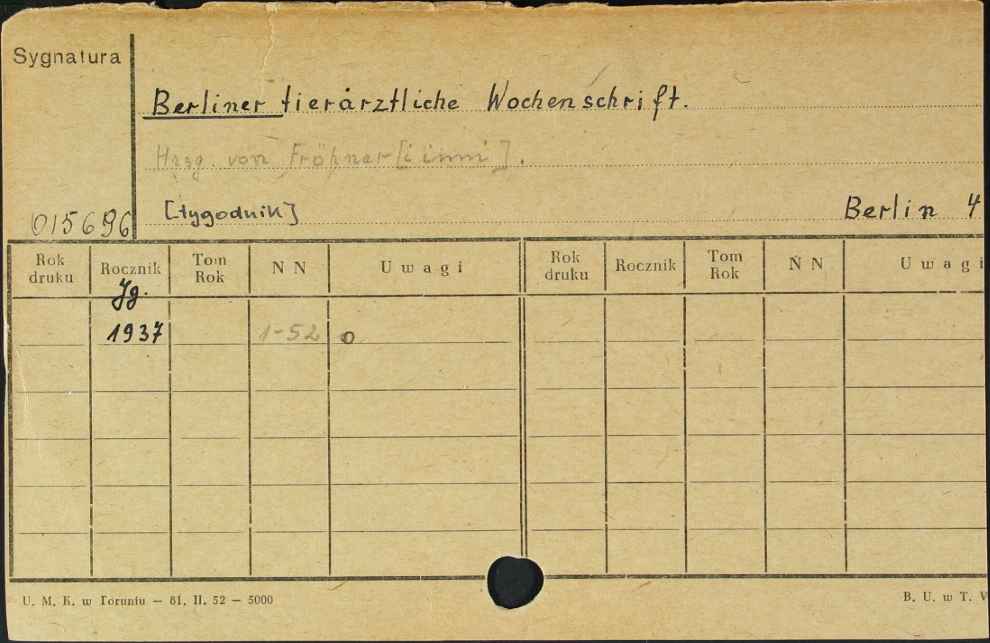 Sygnatura
Berliner tierärztliche Wochenschrift.
Hrsg. von Fröhner [i inni].
015696
[tygodnik]
Berlin 4
Rok druku
Rocznik
Tom Rok
N N
Uwagi
Rok druku
Rocznik
Tom Rok
N N
Uwagi
Jg.
1937
1-52
o
U. M. K. w Toruniu — 61. II. 52 — 5000
B. U. w T. V